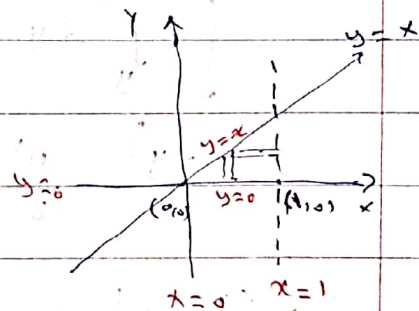 Y
y = x
y=x
y=0
y=0
(0,0)
(1,0)
x
x=0
x=1